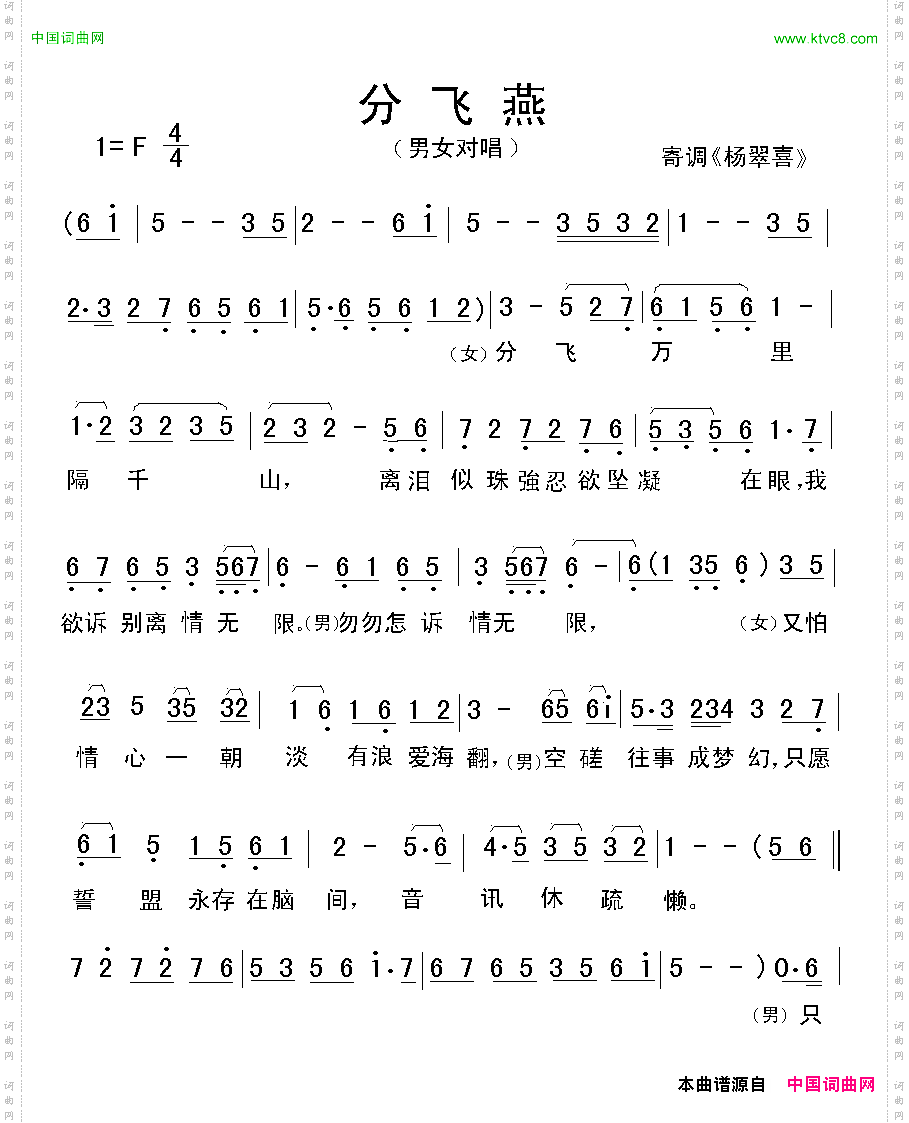 中国词曲网 www.ktvc8.com
分飞燕
1=F 4/4 （男女对唱） 寄调《杨翠喜》
(6 i | 5 - - 3 5 | 2 - - 6 i | 5 - - 3 5 3 2 | 1 - - 3 5 |
2· 3 2 7 6 5 6 1 | 5· 6 5 6 1 2) | 3 - 5 2 7 | 6 1 5 6 1 - |
（女）分 飞 万 里
1· 2 3 2 3 5 | 2 3 2 - 5 6 | 7 2 7 2 7 6 | 5 3 5 6 1· 7 |
隔 千 山， 离泪 似 珠強忍欲坠凝 在眼，我
6 7 6 5 3 567 | 6 - 6 1 6 5 | 3 567 6 - | 6 (1 35 6) 3 5
欲诉 别离情无 限。（男）勿勿怎 诉 情无 限， （女）又怕
23 5 35 32 | 1 6 1 6 1 2 | 3 - 65 6i | 5· 3 234 3 2 7 |
情 心 一 朝 淡 有浪 爱海 翻，（男）空 磋 往事 成梦 幻，只愿
6 1 5 1 5 6 1 | 2 - 5· 6 | 4· 5 3 5 3 2 | 1 - - (5 6 ||
誓 盟 永存 在脑 间， 音 讯 休 疏 懒。
7 2 7 2 7 6 | 5 3 5 6 i· 7 | 6 7 6 5 3 5 6 i | 5 - - ) 0· 6 |
（男）只
本曲谱源自 中国词曲网
词曲网